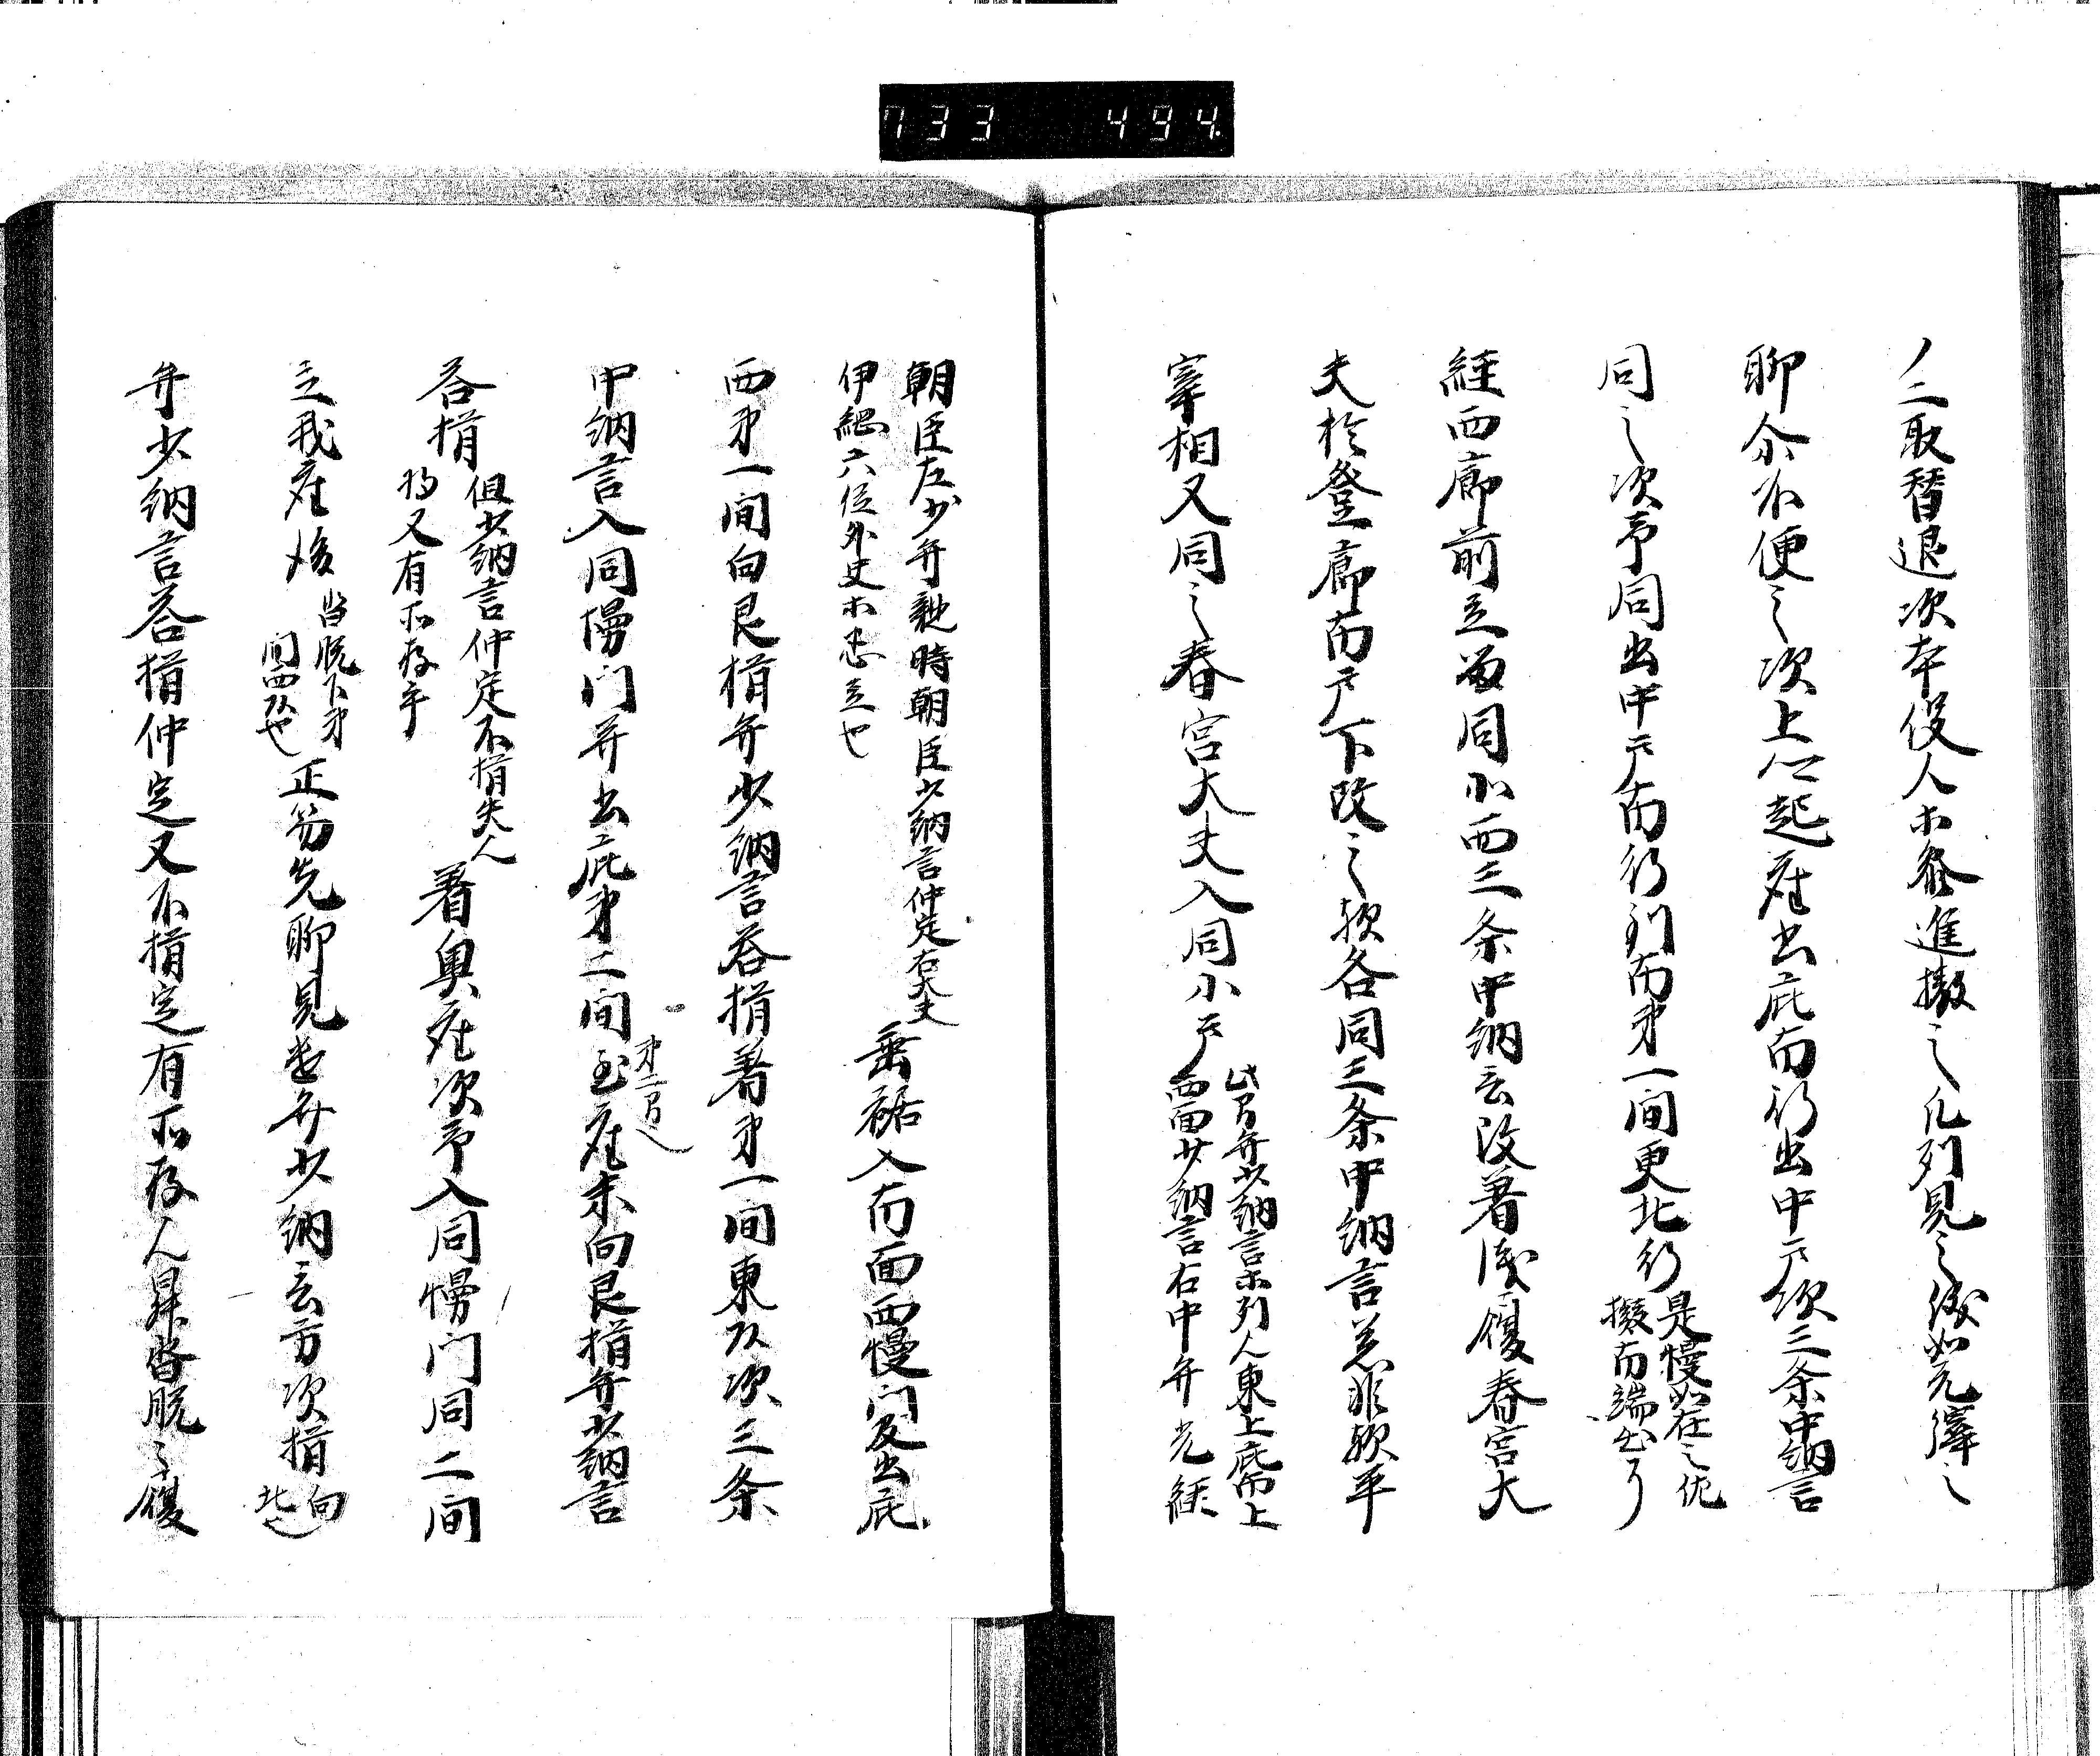 733 494
ノ二取替退次本役人木参進撤之凡列見之儀如先澤之
聊余不便之次上公起座出庇南行出中戸次三条中納言
同之次予同出中戸南行到南第一間更北行
是慢如在之仍
撥南端出了
経西廊前立留同小西三条中納言改着浅履春宮大
夫於登廊南戸下改之歟各同三条中納言先非歟平
宰相又同之春宮大夫入同小戸
此間弁少納言木列人東上庇南上
西面少納言右中弁光経
朝臣左少弁親時朝臣少納言仲定右大夫
伊綱六位外史木悉立也
垂裾入南面西慢門及出庇
西第一間向艮揖弁少納言答揖着第一間東次三条
中納言入同慢門并出庇第二間
第二間
至座末向艮揖弁少納言
答揖
但少納言仲定不揖失人
物又有所存乎
着奥座次予入同慢門同二間
立我座後
沓脱下第
間西也
正笏先聊見遣弁少納言方次揖
向
北也
弁少納言答揖仲定又不揖定有所存人昇沓脱之履